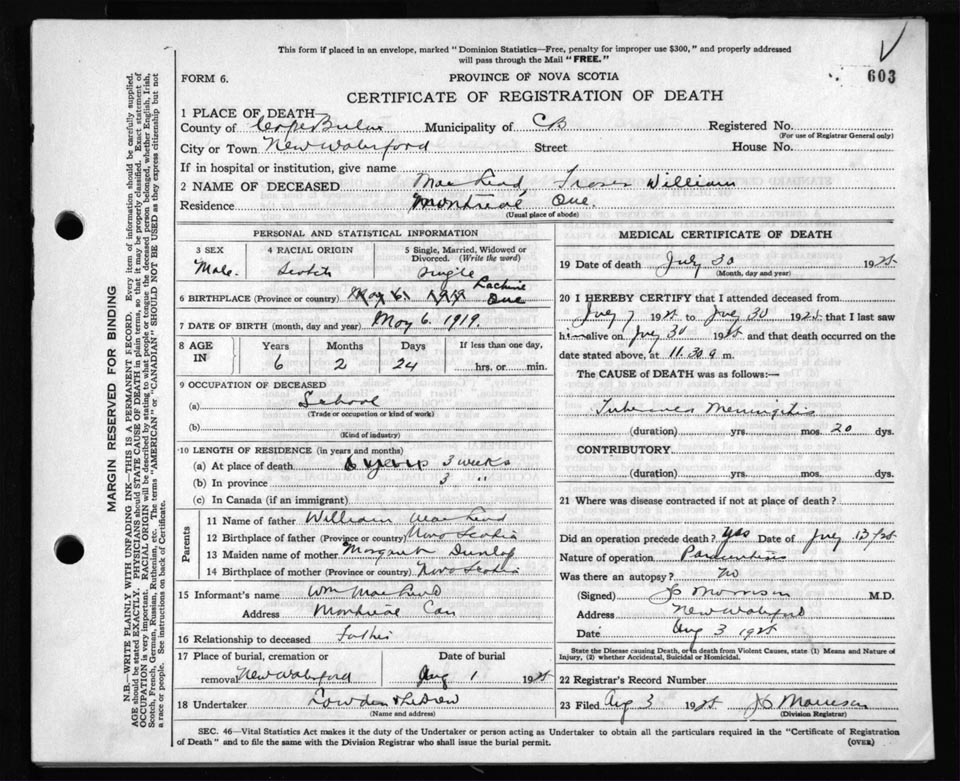 This form if placed in an envelope, marked "Dominion Statistics—Free, penalty for improper use $300," and properly addressed
will pass through the Mail "FREE."
603
FORM 6.
PROVINCE OF NOVA SCOTIA
CERTIFICATE OF REGISTRATION OF DEATH
MARGIN RESERVED FOR BINDING
N.B.—WRITE PLAINLY WITH UNFADING INK—THIS IS A PERMANENT RECORD. Every item of information should be carefully supplied.
AGE should be stated EXACTLY. PHYSICIANS should STATE CAUSE OF DEATH in plain terms, so that it may be properly classified. Exact statement of
OCCUPATION is very important. RACIAL ORIGIN will be described by stating to what people or tongue the deceased person belonged, whether English, Irish,
Scotch, French, German, Russian, Ruthenian, etc. The terms "AMERICAN" or "CANADIAN" SHOULD NOT BE USED as they express citizenship but not
a race or people. See instructions on back of Certificate.
1 PLACE OF DEATH
County of Cape Breton Municipality of CB Registered No.
(For use of Registrar General only)
City or Town New Waterford Street House No.
If in hospital or institution, give name
2 NAME OF DECEASED William
Residence Montreal Que.
(Usual place of abode)
PERSONAL AND STATISTICAL INFORMATION
3 SEX 4 RACIAL ORIGIN 5 Single, Married, Widowed or
Divorced. (Write the word)
Male. Scotch single
6 BIRTHPLACE (Province or country) May 6. 1919 Lachine
Que
7 DATE OF BIRTH (month, day and year) May 6. 1919.
8 AGE
IN
Years Months Days If less than one day,
6 2 24 hrs. or min.
9 OCCUPATION OF DECEASED
(a) School
(Trade or occupation or kind of work)
(b)
(Kind of industry)
10 LENGTH OF RESIDENCE (in years and months)
(a) At place of death 6 years 3 weeks
(b) In province 3 "
(c) In Canada (if an immigrant)
Parents
11 Name of father William
12 Birthplace of father (Province or country) Nova Scotia
13 Maiden name of mother Margaret Dunlop
14 Birthplace of mother (Province or country) Nova Scotia
15 Informant's name Wm
Address Montreal Can
16 Relationship to deceased Father
17 Place of burial, cremation or Date of burial
removal New Waterford Aug 1 1925
18 Undertaker
(Name and address)
MEDICAL CERTIFICATE OF DEATH
19 Date of death July 30 1925
(Month, day and year)
20 I HEREBY CERTIFY that I attended deceased from
July 7 1925 to July 30 1925 that I last saw
him alive on July 30 1925 and that death occurred on the
date stated above, at 11.30 a m.
The CAUSE OF DEATH was as follows:—
Meningitis
(duration) yrs. mos. 20 dys.
CONTRIBUTORY
(duration) yrs. mos. dys.
21 Where was disease contracted if not at place of death?
Did an operation precede death? Yes Date of July 13/25
Nature of operation
Was there an autopsy? No
(Signed) M.D.
Address New Waterford
Date Aug 3 1925
State the Disease causing Death, or in death from Violent Causes, state (1) Means and Nature of
Injury, (2) whether Accidental, Suicidal or Homicidal.
22 Registrar's Record Number
23 Filed Aug 3 1925
(Division Registrar)
SEC. 46—Vital Statistics Act makes it the duty of the Undertaker or person acting as Undertaker to obtain all the particulars required in the "Certificate of Registration
of Death" and to file the same with the Division Registrar who shall issue the burial permit. (OVER)